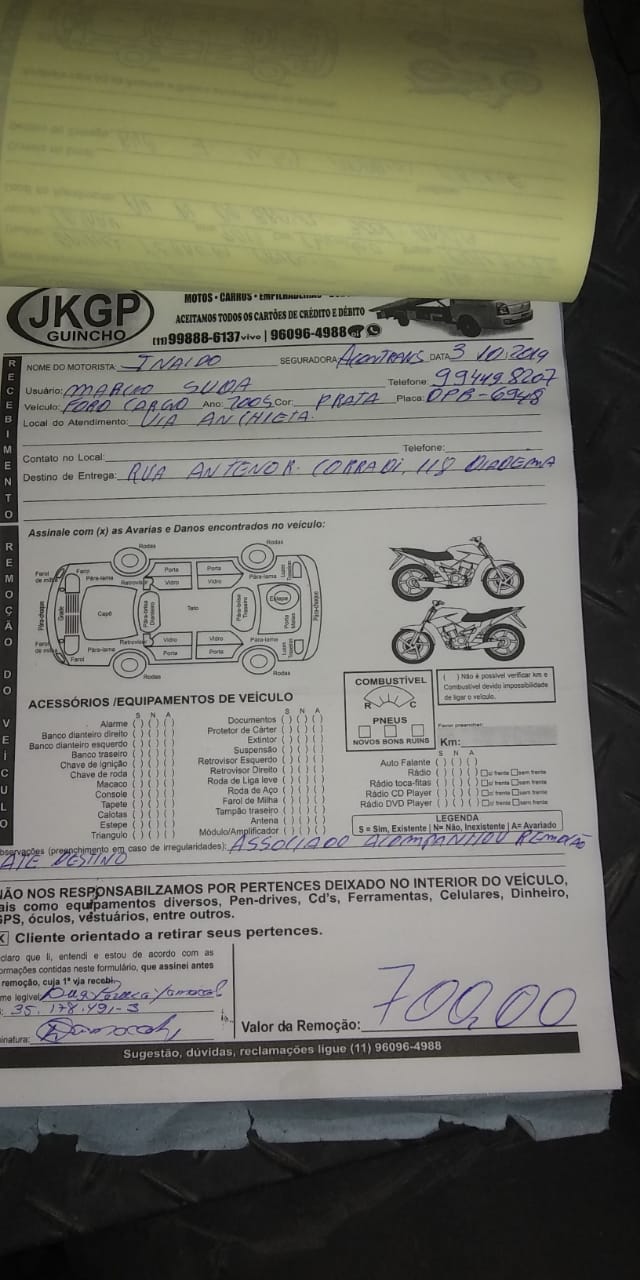 JKGP
GUINCHO
MOTOS • CARROS • EMPILHADEIRAS
ACEITAMOS TODOS OS CARTÕES DE CRÉDITO E DÉBITO
(11) 99888-6137 vivo | 96096-4988
RECEBIMENTO
NOME DO MOTORISTA: INALDO SEGURADORA: DATA 3 10 2019
Usuário: MARCIO SUDA Telefone: 994498207
Veículo: FORD CARGO Ano: 2005 Cor: PRATA Placa: DPB-6948
Local do Atendimento: VIA ANCHIETA
Contato no Local: Telefone:
Destino de Entrega: RUA ANTENOR CORRADI, 118 DIADEMA
REMOÇÃO DO VEÍCULO
Assinale com (x) as Avarias e Danos encontrados no veículo:
Rodas Rodas
Farol de milha Farol Pára-lama Retrovisor Porta Vidro Porta Vidro Pára-lama Luzes Traseiras
Pára-choque Grade Capô Pára-brisa Dianteiro Teto Pára-brisa Traseiro Estepe Porta Malas Pára-choque
Farol de milha Farol Pára-lama Retrovisor Vidro Porta Vidro Porta Pára-lama Luzes Traseiras
Rodas Rodas
ACESSÓRIOS /EQUIPAMENTOS DE VEÍCULO
S N A
Alarme ( ) ( ) ( )
Banco dianteiro direito ( ) ( ) ( )
Banco dianteiro esquerdo ( ) ( ) ( )
Banco traseiro ( ) ( ) ( )
Chave de Ignição ( ) ( ) ( )
Chave de roda ( ) ( ) ( )
Macaco ( ) ( ) ( )
Console ( ) ( ) ( )
Tapete ( ) ( ) ( )
Calotas ( ) ( ) ( )
Estepe ( ) ( ) ( )
Triangulo ( ) ( ) ( )
S N A
Documentos ( ) ( ) ( )
Protetor de Cárter ( ) ( ) ( )
Extintor ( ) ( ) ( )
Suspensão ( ) ( ) ( )
Retrovisor Esquerdo ( ) ( ) ( )
Retrovisor Direito ( ) ( ) ( )
Roda de Liga leve ( ) ( ) ( )
Roda de Aço ( ) ( ) ( )
Farol de Milha ( ) ( ) ( )
Tampão traseiro ( ) ( ) ( )
Antena ( ) ( ) ( )
Módulo/Amplificador ( ) ( ) ( )
COMBUSTÍVEL
R C
PNEUS
NOVOS BONS RUINS
( ) Não é possível verificar km e
Combustível devido impossibilidade
de ligar o veículo.
Favor preencher:
Km:
S N A
Auto Falante ( ) ( ) ( )
Rádio ( ) ( ) ( ) c/ frente sem frente
Rádio toca-fitas ( ) ( ) ( ) c/ frente sem frente
Rádio CD Player ( ) ( ) ( ) c/ frente sem frente
Rádio DVD Player ( ) ( ) ( ) c/ frente sem frente
LEGENDA
S = Sim, Existente | N= Não, Inexistente | A= Avariado
bservações (preenchimento em caso de irregularidades): ASSOCIADO ACOMPANHOU REMOÇÃO
ATE DESTINO
NÃO NOS RESPONSABILZAMOS POR PERTENCES DEIXADO NO INTERIOR DO VEÍCULO,
ais como equipamentos diversos, Pen-drives, Cd's, Ferramentas, Celulares, Dinheiro,
GPS, óculos, vestuários, entre outros.
X Cliente orientado a retirar seus pertences.
claro que li, entendi e estou de acordo com as
ormações contidas neste formulário, que assinei antes
remoção, cuja 1ª via recebi.
me legível:
35.178.491-3
inatura:
Valor da Remoção: 700,00
Sugestão, dúvidas, reclamações ligue (11) 96096-4988